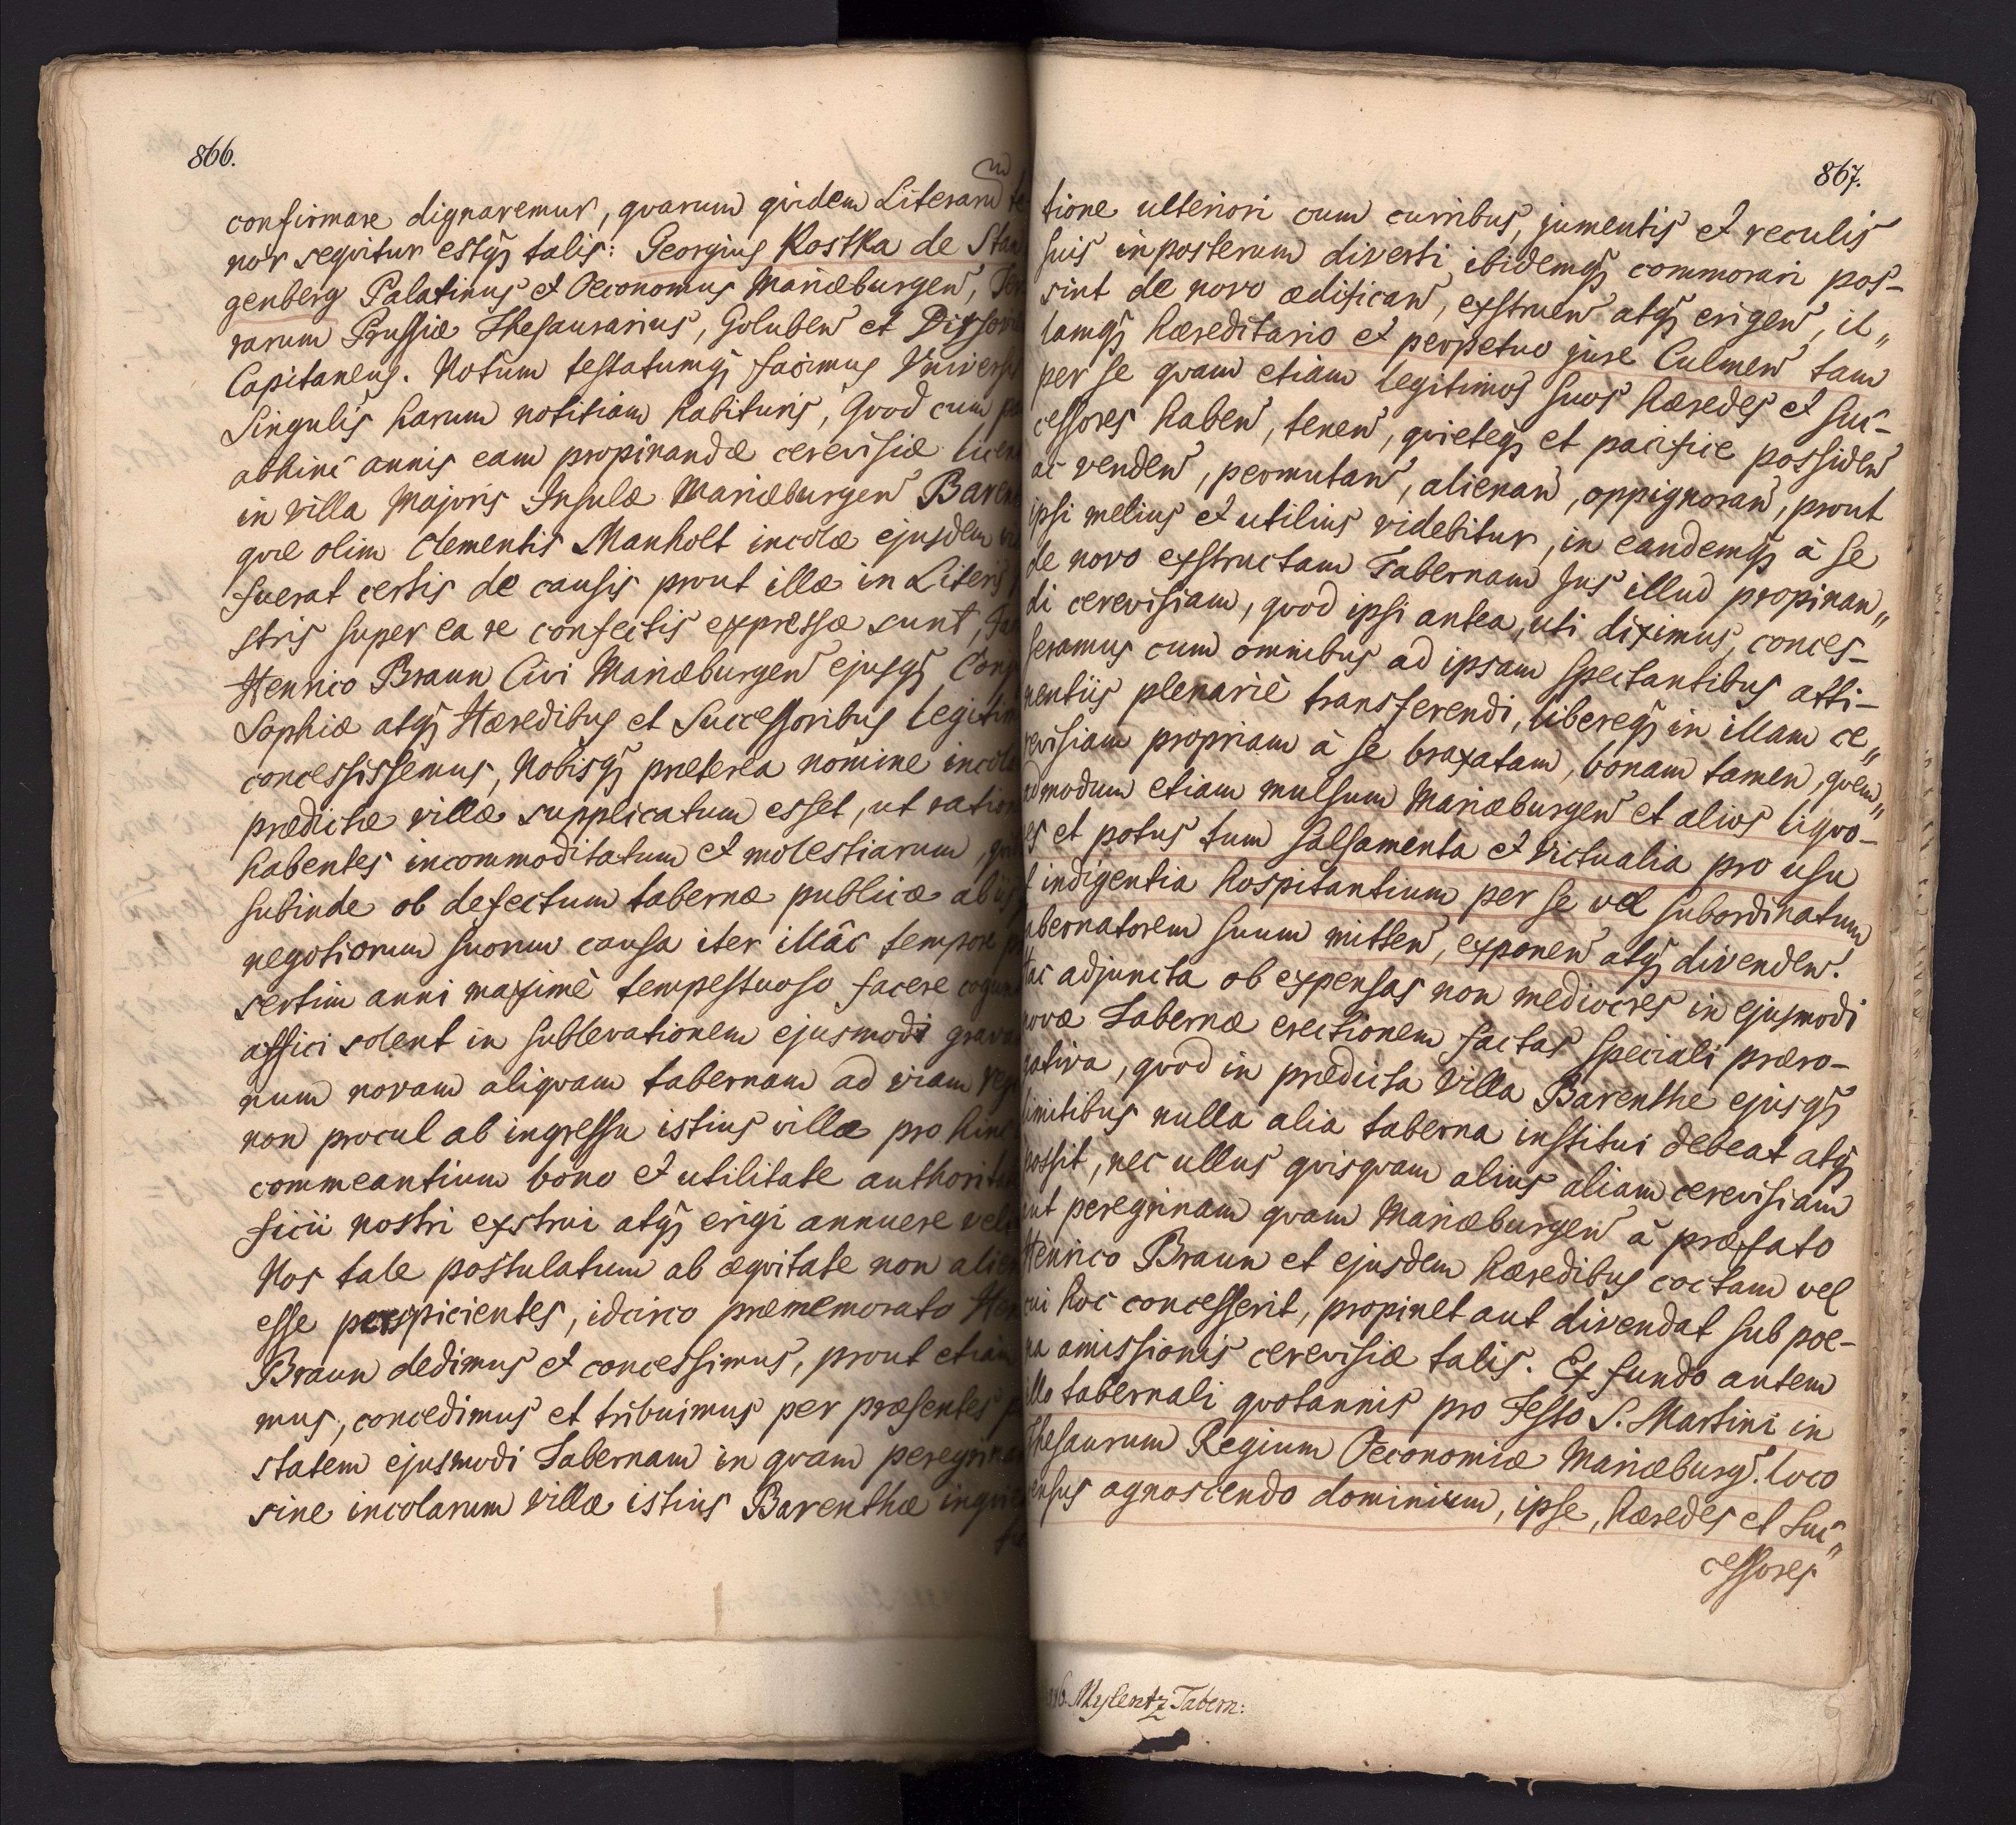 866.
confirmare dignaremur, qvarum qvidem Literarum
nor seqvitur estqȝ talis: Georgius Kostka de Stan
genberg Palatinus et Oeconomus Mariæburgen, Ter
rarum Prussiæ Thesaurarius, Goluben et
Capitaneus. Notum testatumqȝ facimus Univers
Singulis harum notitiam habituris, Qvod cum
abhinc annis eam propinandæ cerevisiæ licen
in villa Majoris Insulæ Mariæburgen Baren
qvæ olim Clementis Manholt incolæ ejusdem
fuerat certis de causis prout illæ in Literis
stris super ea re confectis expressæ sunt,
Henrico Braun Civi Mariæburgen ejusqȝ Conj
Sophiæ atqȝ Hæredibus et Successoribus legitim
concessissemus, Nobisqȝ præterea nomine incol
prædictæ villæ supplicatum esset, ut ration
habentes incommoditatum et molestiarum,
subinde ob defectum tabernæ publicæ ab
negotiorum suorum causa iter illâc tempore
sertim anni maximè tempestuoso facere cogun
affici solent in sublevationem ejusmodi grava
num novam aliqvam tabernam ad viam reg
non procul ab ingressu istius villæ pro hinc
commeantium bono et utilitate authorita
ficii nostri exstrui atqȝ erigi annuere vel
Nos tale postulatum ab æqvitate non alien
esse perspicientes, idcirco præmemorato Hen
Braun dedimus et concessimus, prout etiam
mus, concedimus et tribuimus per præsentes
statem ejusmodi Tabernam in qvam peregrina
sine incolarum villæ istius Barenthæ inqvie
867.
tione ulteriori cum curribus, jumentis et reculis
suis inposterum diverti ibidemqȝ commorari pos-
sint de novo ædifican, exstruen atqȝ erigen, il„
lamqȝ hæreditario et perpetuo jure Culmen tam
per se qvam etiam legitimos suos hæredes et suc-
cessores haben, tenen, qvieteqȝ et pacifice possiden
ac venden, permutan, alienan, oppignoran, prout
ipsi melius et utilius videbitur, in eandemqȝ à se
de novo exstructam Tabernam Jus illud propinan„
di cerevisiam, qvod ipsi antea, uti diximus, conces-
seramus cum omnibus ad ipsam spectantibus atti-
nentiis plenariè transferendi, libereqȝ in illam ce„
revisiam propriam à se braxatam, bonam tamen, qvem„
admodum etiam mulsum Mariæburgen et alios liqvo-
es et potus tum salsamenta et victualia pro usu
t indigentia hospitantium per se vel subordinatum
abernatorem suum mitten, exponen atqȝ divenden.
Hac adjuncta ob expensas non mediocres in ejusmodi
novæ Tabernæ erectionem factas speciali præro-
gativa, qvod in prædicta Villa Barenthe ejusqȝ
limitibus nulla alia taberna institui debeat atqȝ
possit, nec ullus qvisqvam alius aliam cerevisiam
aut peregrinam qvam Mariæburgen à præfato
Henrico Braun et ejusdem hæredibus coctam vel
cui hoc concesserit, propinet aut divendat sub poe-
na amissionis cerevisiæ talis. Ex fundo autem
illo tabernali qvotannis pro Festo S. Martini in
Thesaurum Regium Oeconomiæ Mariæburg. loco
census agnoscendo dominium, ipse, hæredes et suc„
cessores
Mylentz Tabern: